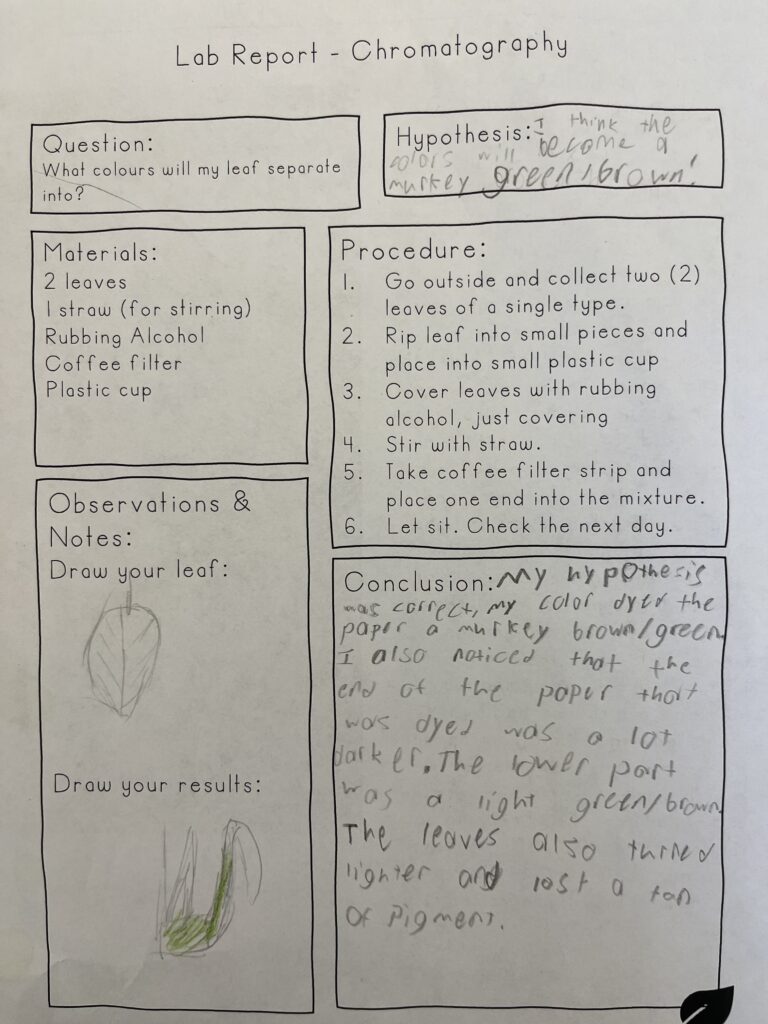 Lab Report - Chromatography
Question:
What colours will my leaf separate
into?
Hypothesis: I think the
colors will become a
murkey green/brown!
Materials:
2 leaves
1 straw (for stirring)
Rubbing Alcohol
Coffee filter
Plastic cup
Procedure:
1. Go outside and collect two (2)
leaves of a single type.
2. Rip leaf into small pieces and
place into small plastic cup
3. Cover leaves with rubbing
alcohol, just covering
4. Stir with straw.
5. Take coffee filter strip and
place one end into the mixture.
6. Let sit. Check the next day.
Observations &
Notes:
Draw your leaf:
Draw your results:
Conclusion: My hypothesis
was correct, my color dyed the
paper a murkey brown/green.
I also noticed that the
end of the paper that
was dyed was a lot
darker. The lower part
was a light green/brown.
The leaves also turned
lighter and lost a ton
of pigment.